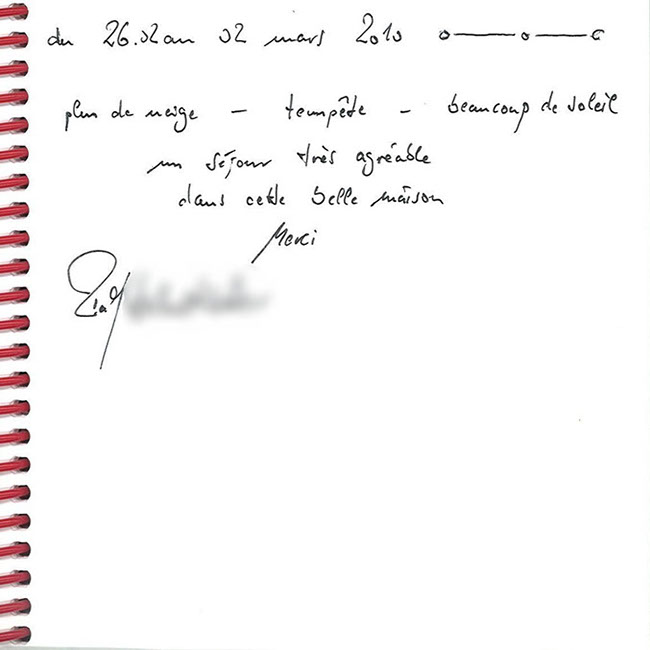 du 26.02 au 02 mars 2010
plus de neige – tempête – beaucoup de soleil
un séjour très agréable
dans cette belle maison
Merci